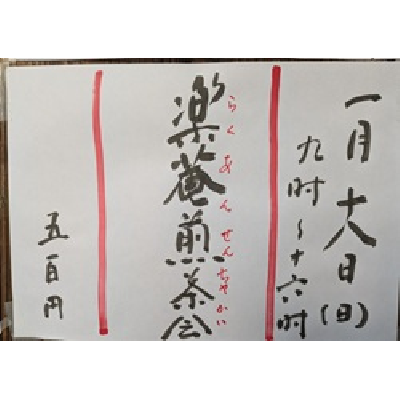 一月十八日(日)
九时~十六时
楽菴煎茶会
らくあんせんちゃかい
五百円